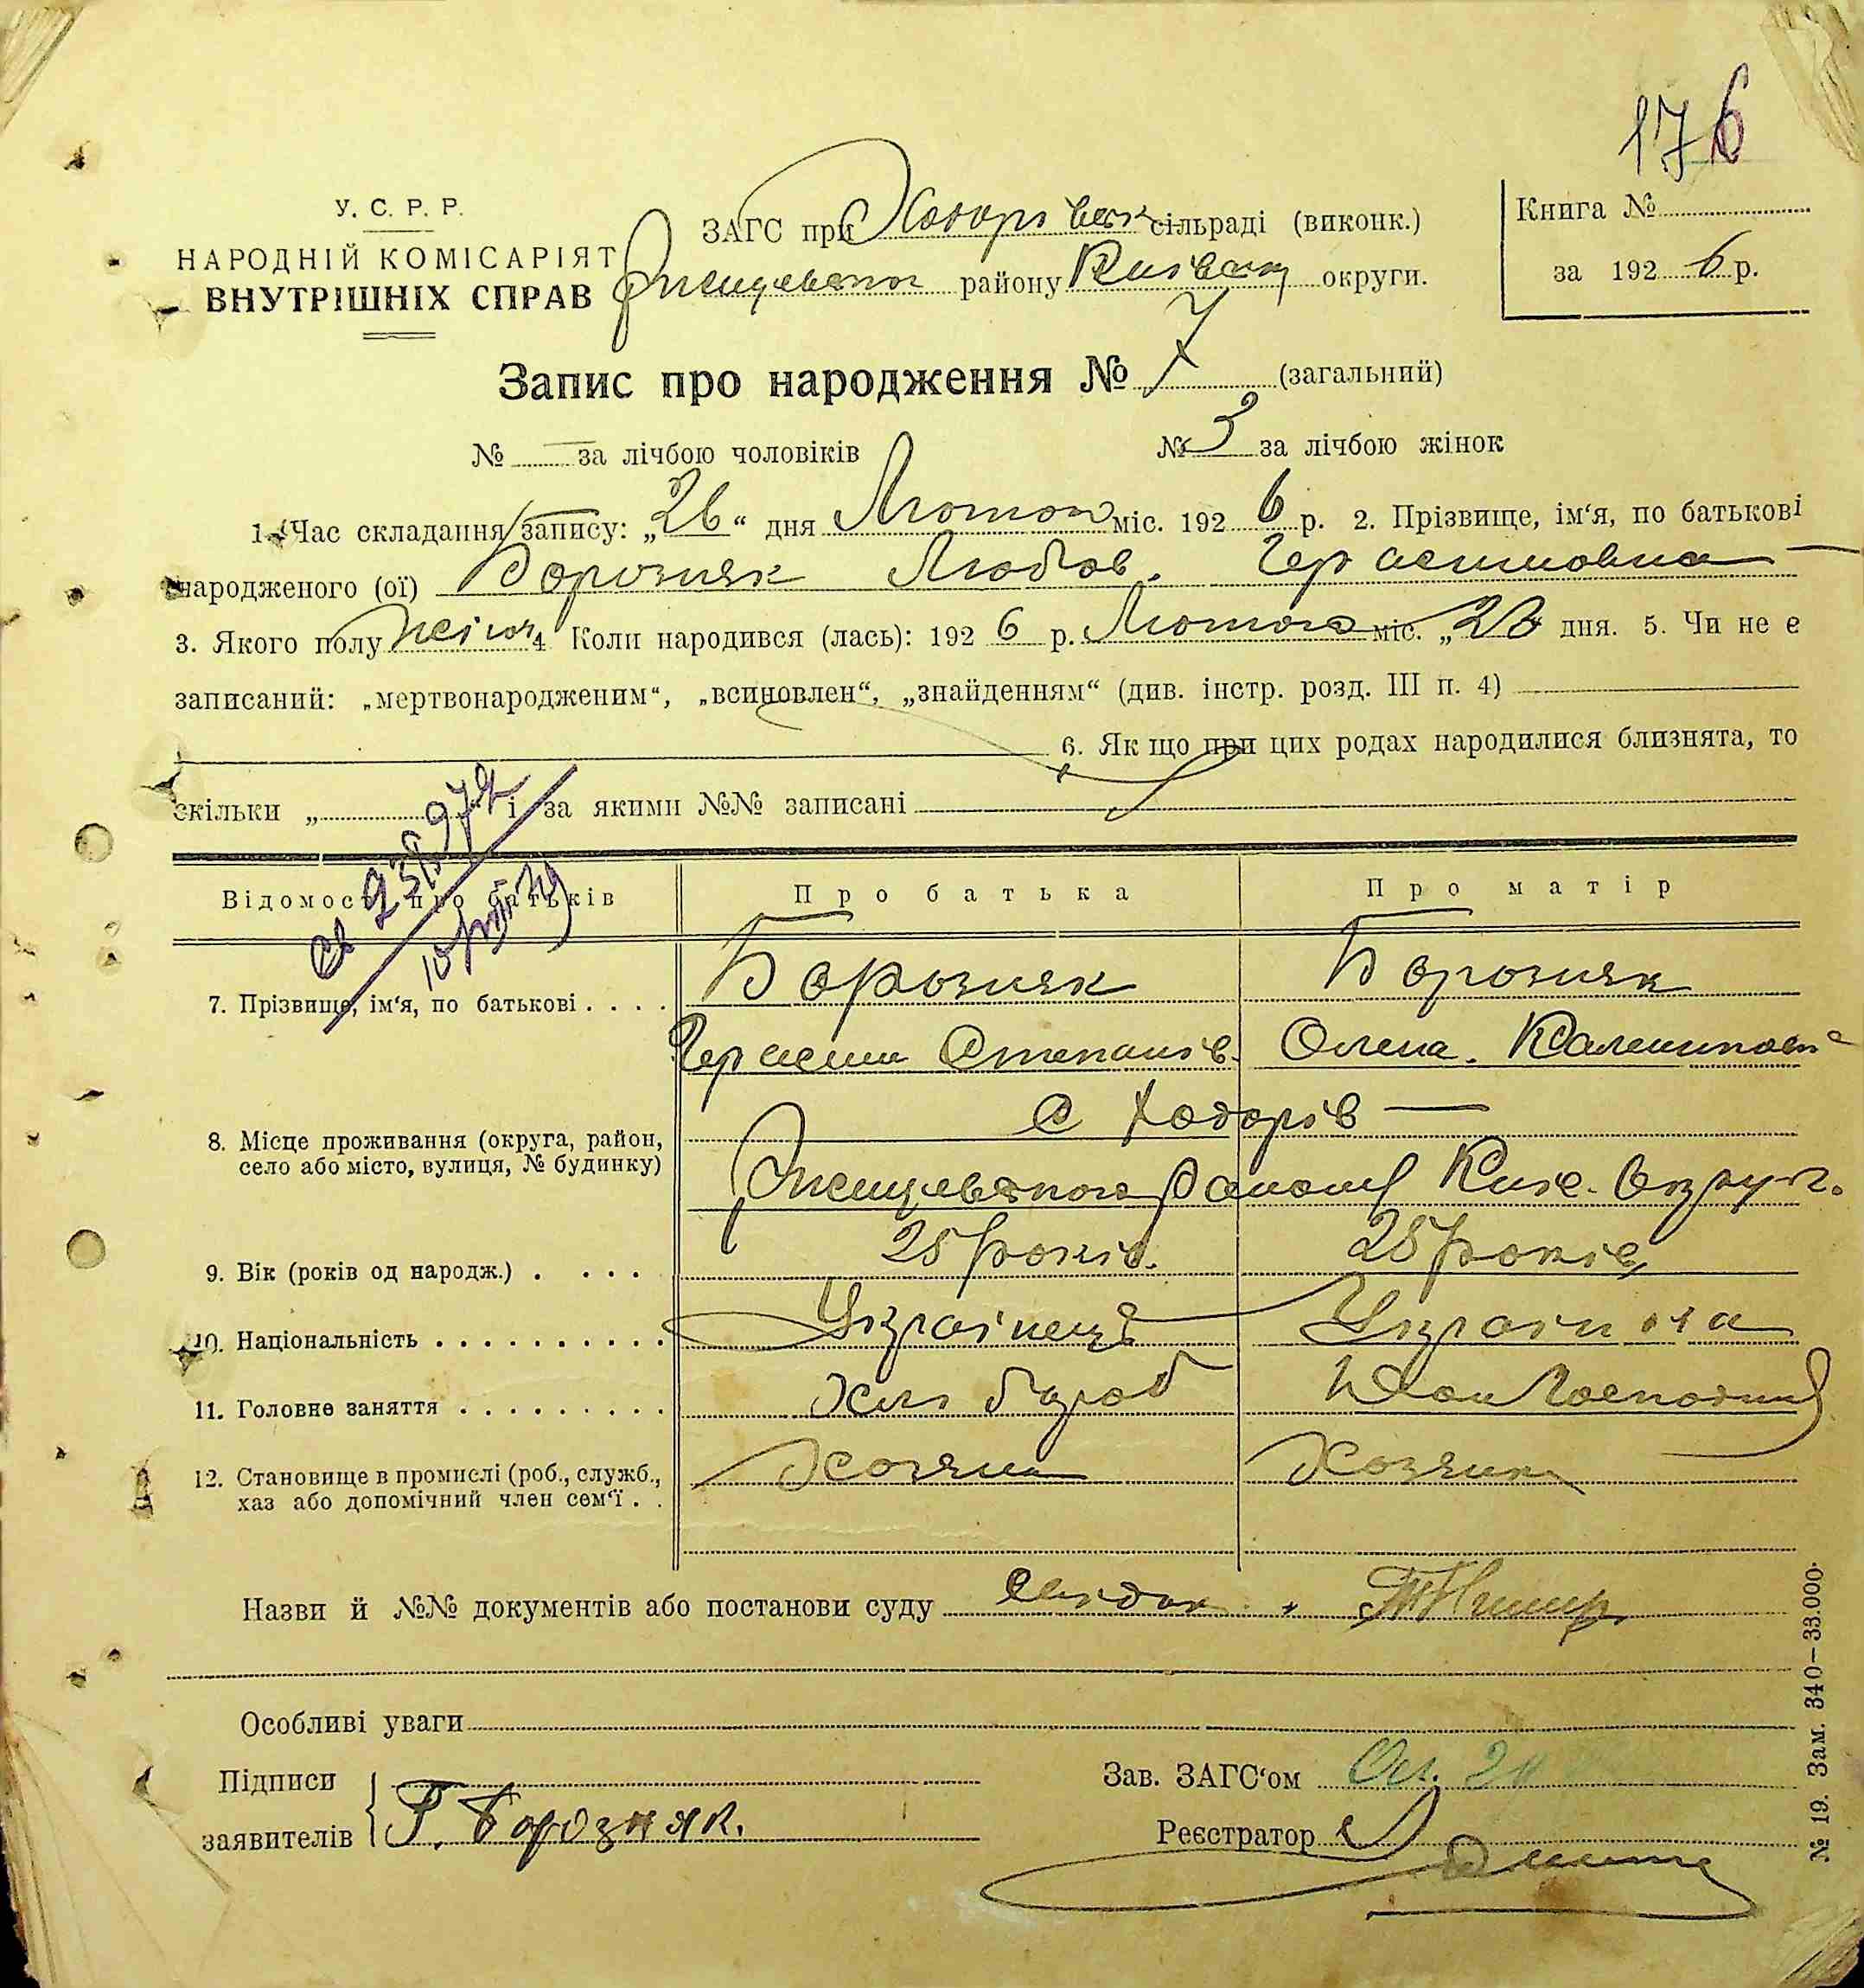 176
У. С. Р. Р.
НАРОДНІЙ КОМІСАРІЯТ
ВНУТРІШНІХ СПРАВ
ЗАГС при Ходорівськ сільраді (виконк.)
Ржищевського району Київськ округи.
Книга №
за 1926 р.
Запис про народження № 7 (загальний)
№ — за лічбою чоловіків № 3 за лічбою жінок
1. Час складання запису: „26“ дня Лютого міс. 1926 р. 2. Прізвище, ім'я, по батькові
народженого (ої) Борозняк Любов. Герасимовна
3. Якого полу жіноч 4 Коли народився (лась): 1926 р. Лютого міс. „ дня. 5. Чи не є
записаний: „мертвонародженим“, „всиновлен“, „знайденням“ (див. інстр. розд. III п. 4)
6. Як що при цих родах народилися близнята, то
скільки „ і за якими №№ записані
Відомості про батьків
Про батька
Про матір
7. Прізвище, ім'я, по батькові
Борозняк
Борозняк
Герасим Степанів.
Олена.
8. Місце проживання (округа, район,
село або місто, вулиця, № будинку)
с Ходорів —
Ржищевського Району Київ. Округи.
9. Вік (років од народж.)
25 років.
25 років
10. Національність
Українець
Українка
11. Головне заняття
Хлібороб
Дом Господин
12. Становище в промислі (роб., служб.,
хаз або допомічний член сем'ї
Хозяин
Хозяика
Назви й №№ документів або постанови суду
Особливі уваги
Підписи
заявителів
Г. Борозняк.
Зав. ЗАГС'ом
Реєстратор
№ 19. Зам. 340—33.000.